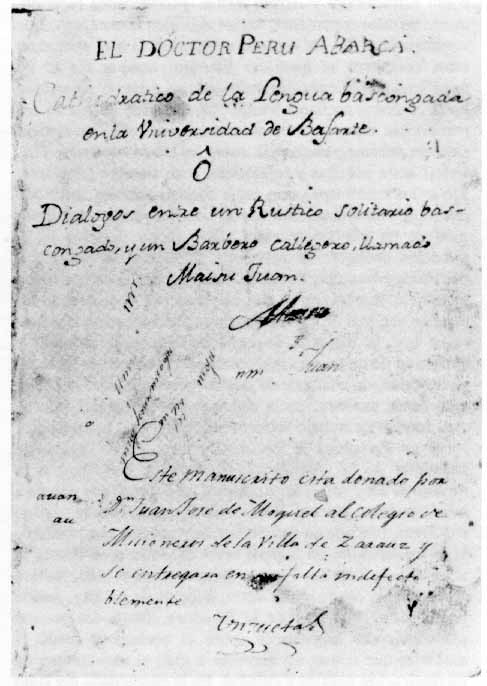 EL DÓCTOR PERU ABARCA.
Cathedratico de la Lengua bascongada
en la Vniversidad de Basarte.
Ô
Dialogos entre un Rustico solitario bas-
congado, y un Barbero callegero, llamado
Maisu Juan.
Juan
nm
Este manuscrito esta donado por
Dn Juan Jose de Moguel al Colegio de
Misioneros de la Villa de Zarauz y
se entregara en su falta indefecti
blemente
avan
au
Vnzueta